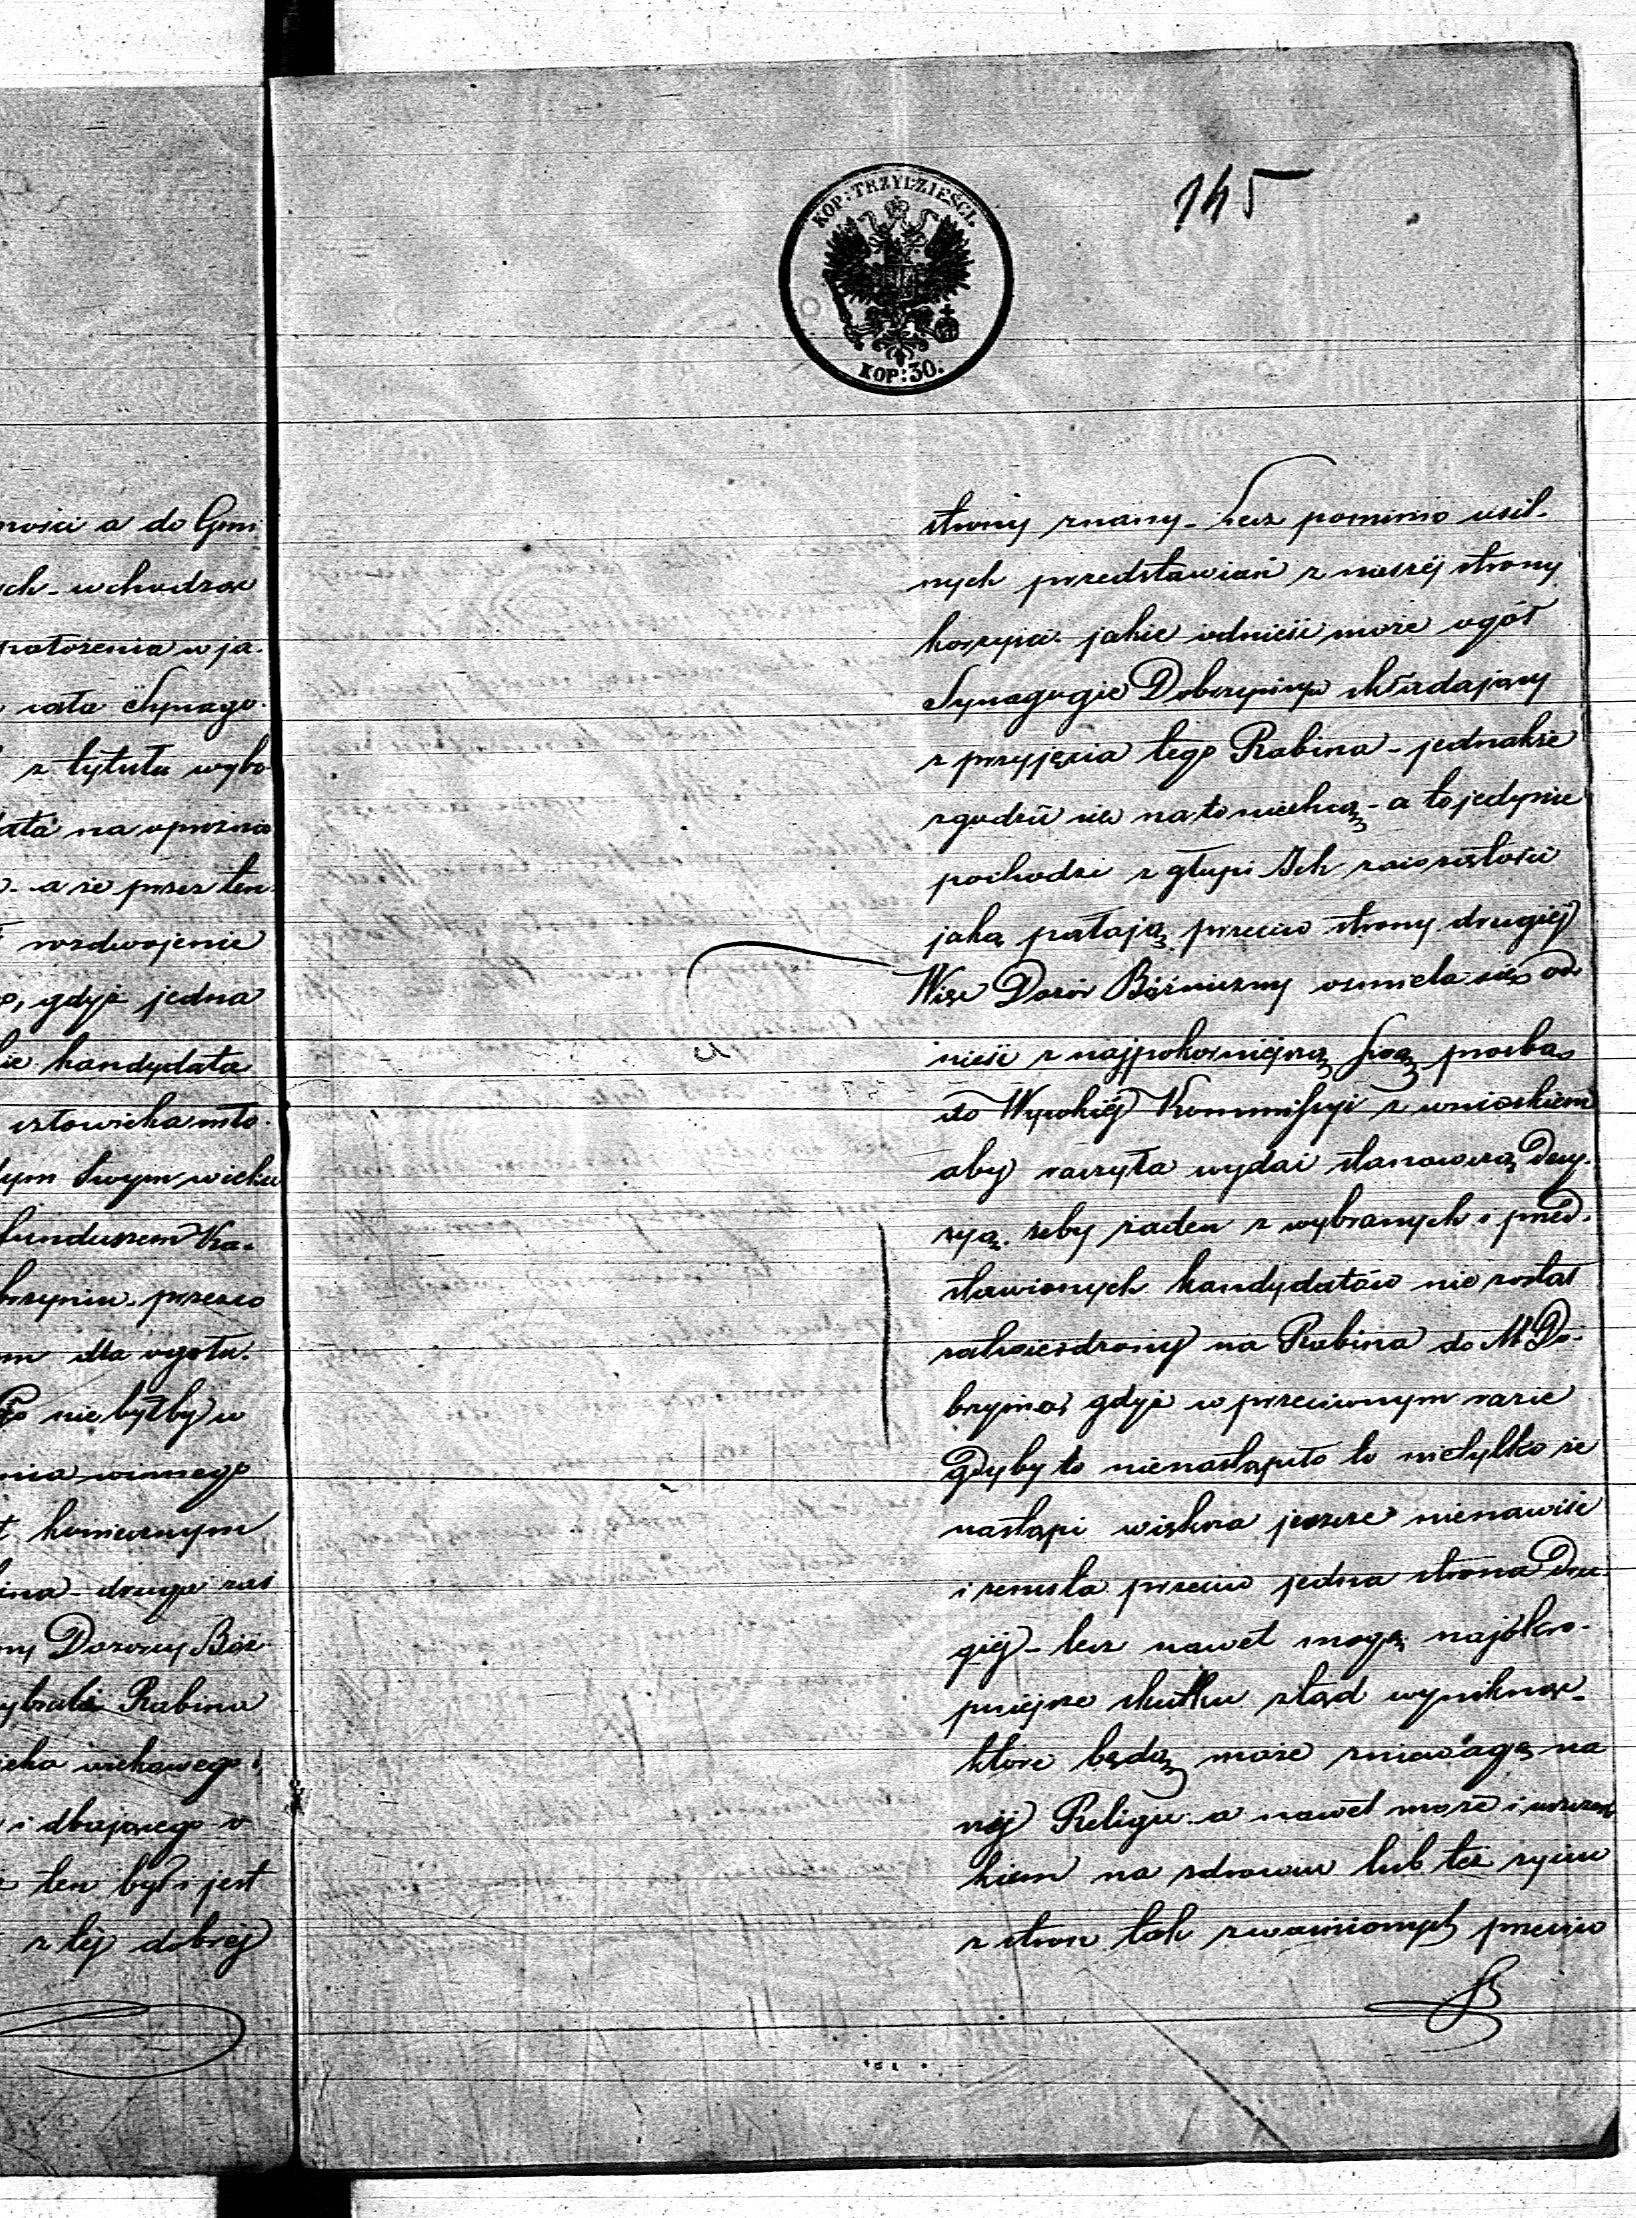 145
KOP: TRZYDZIEŚCI.
KOP: 30.
ności a do Gmi
ch - wchodząc
położenia w ja-
cała Synago-
z tytułu wybo
na opróżnio
- a że przez ten
rozdwojenie
, gdyż jedna
kandydata
człowieka mło-
tym swym wieku
funduszem Ka-
brzyniu - przeco
dla ogółu.
nie byłby w
nia winnego
koniecznym
bina - druga zaś
Dozorcy Boż-
wybrali Rabina
wieka wiekowego i
i dbającego o
ten był i jest
z tej dobrej
strony znany - Lecz pomimo usil-
nych przedstawiań z naszéj strony
korzyści jakie odnieść może ogół
Synagogie Dobrzyniu składający
z przyjęcia tego Rabina - jednakże
zgodzić sie na to niechcą - a to jedynie
pochodzi z głupi Ich zaciętości
jaką pałają przeciw strony drugiéj
Więc Dozór Bóżniczny ośmiela się od-
nieść z najpokorniejszą swą prosbą
do Wysokiéj Kommissyi z wnioskiem
aby raczyła wydać stanowczą Decy-
zyą. żeby żaden z wybranych i przed-
stawionych kandydatów nie został
zatwierdzony na Rabina do M. Do-
brzynia, gdyż w przeciwnym razie
gdyby to nienastąpiło to nietylko że
nastąpi większa jeszcze nienawiść
i zemsta przeciw jedna strona dru-
giéj - lecz nawet mogą najokro-
pniejsze skutki ztąd wyniknąć -
które będą może zniewagą na
néj Religii - a nawet może i uszczerb
kiem na zdrowiu lub téż życiu
z stron tak zwaśnionych przeciw